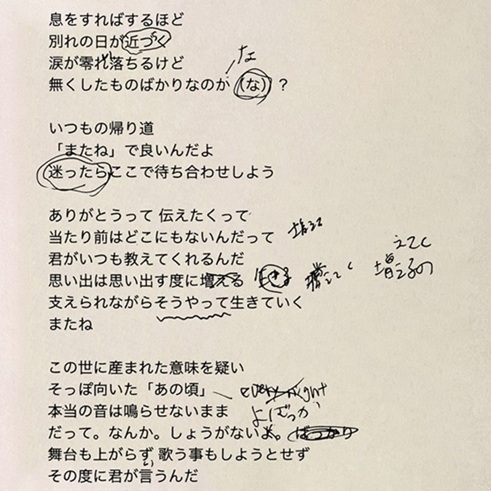 息をすればするほど
別れの日が近づく
涙が零れ落ちるけど
な
無くしたものばかりなのか(な)?
いつもの帰り道
「またね」で良いんだよ
迷ったらここで待ち合わせしよう
ありがとうって 伝えたくって
当たり前はどこにもないんだって
増える
君がいつも教えてくれるんだ
思い出は思い出す度に増える 生きる
えてく
増えるの
支えられながらそうやって生きていく
またね
この世に産まれた意味を疑い
そっぽ向いた「あの頃」 every night
本当の音は鳴らせないまま
だって。なんか。しょうがないよ。 ばっかり
舞台も上がらず 歌う事もしようとせず
その度に君が言うんだ